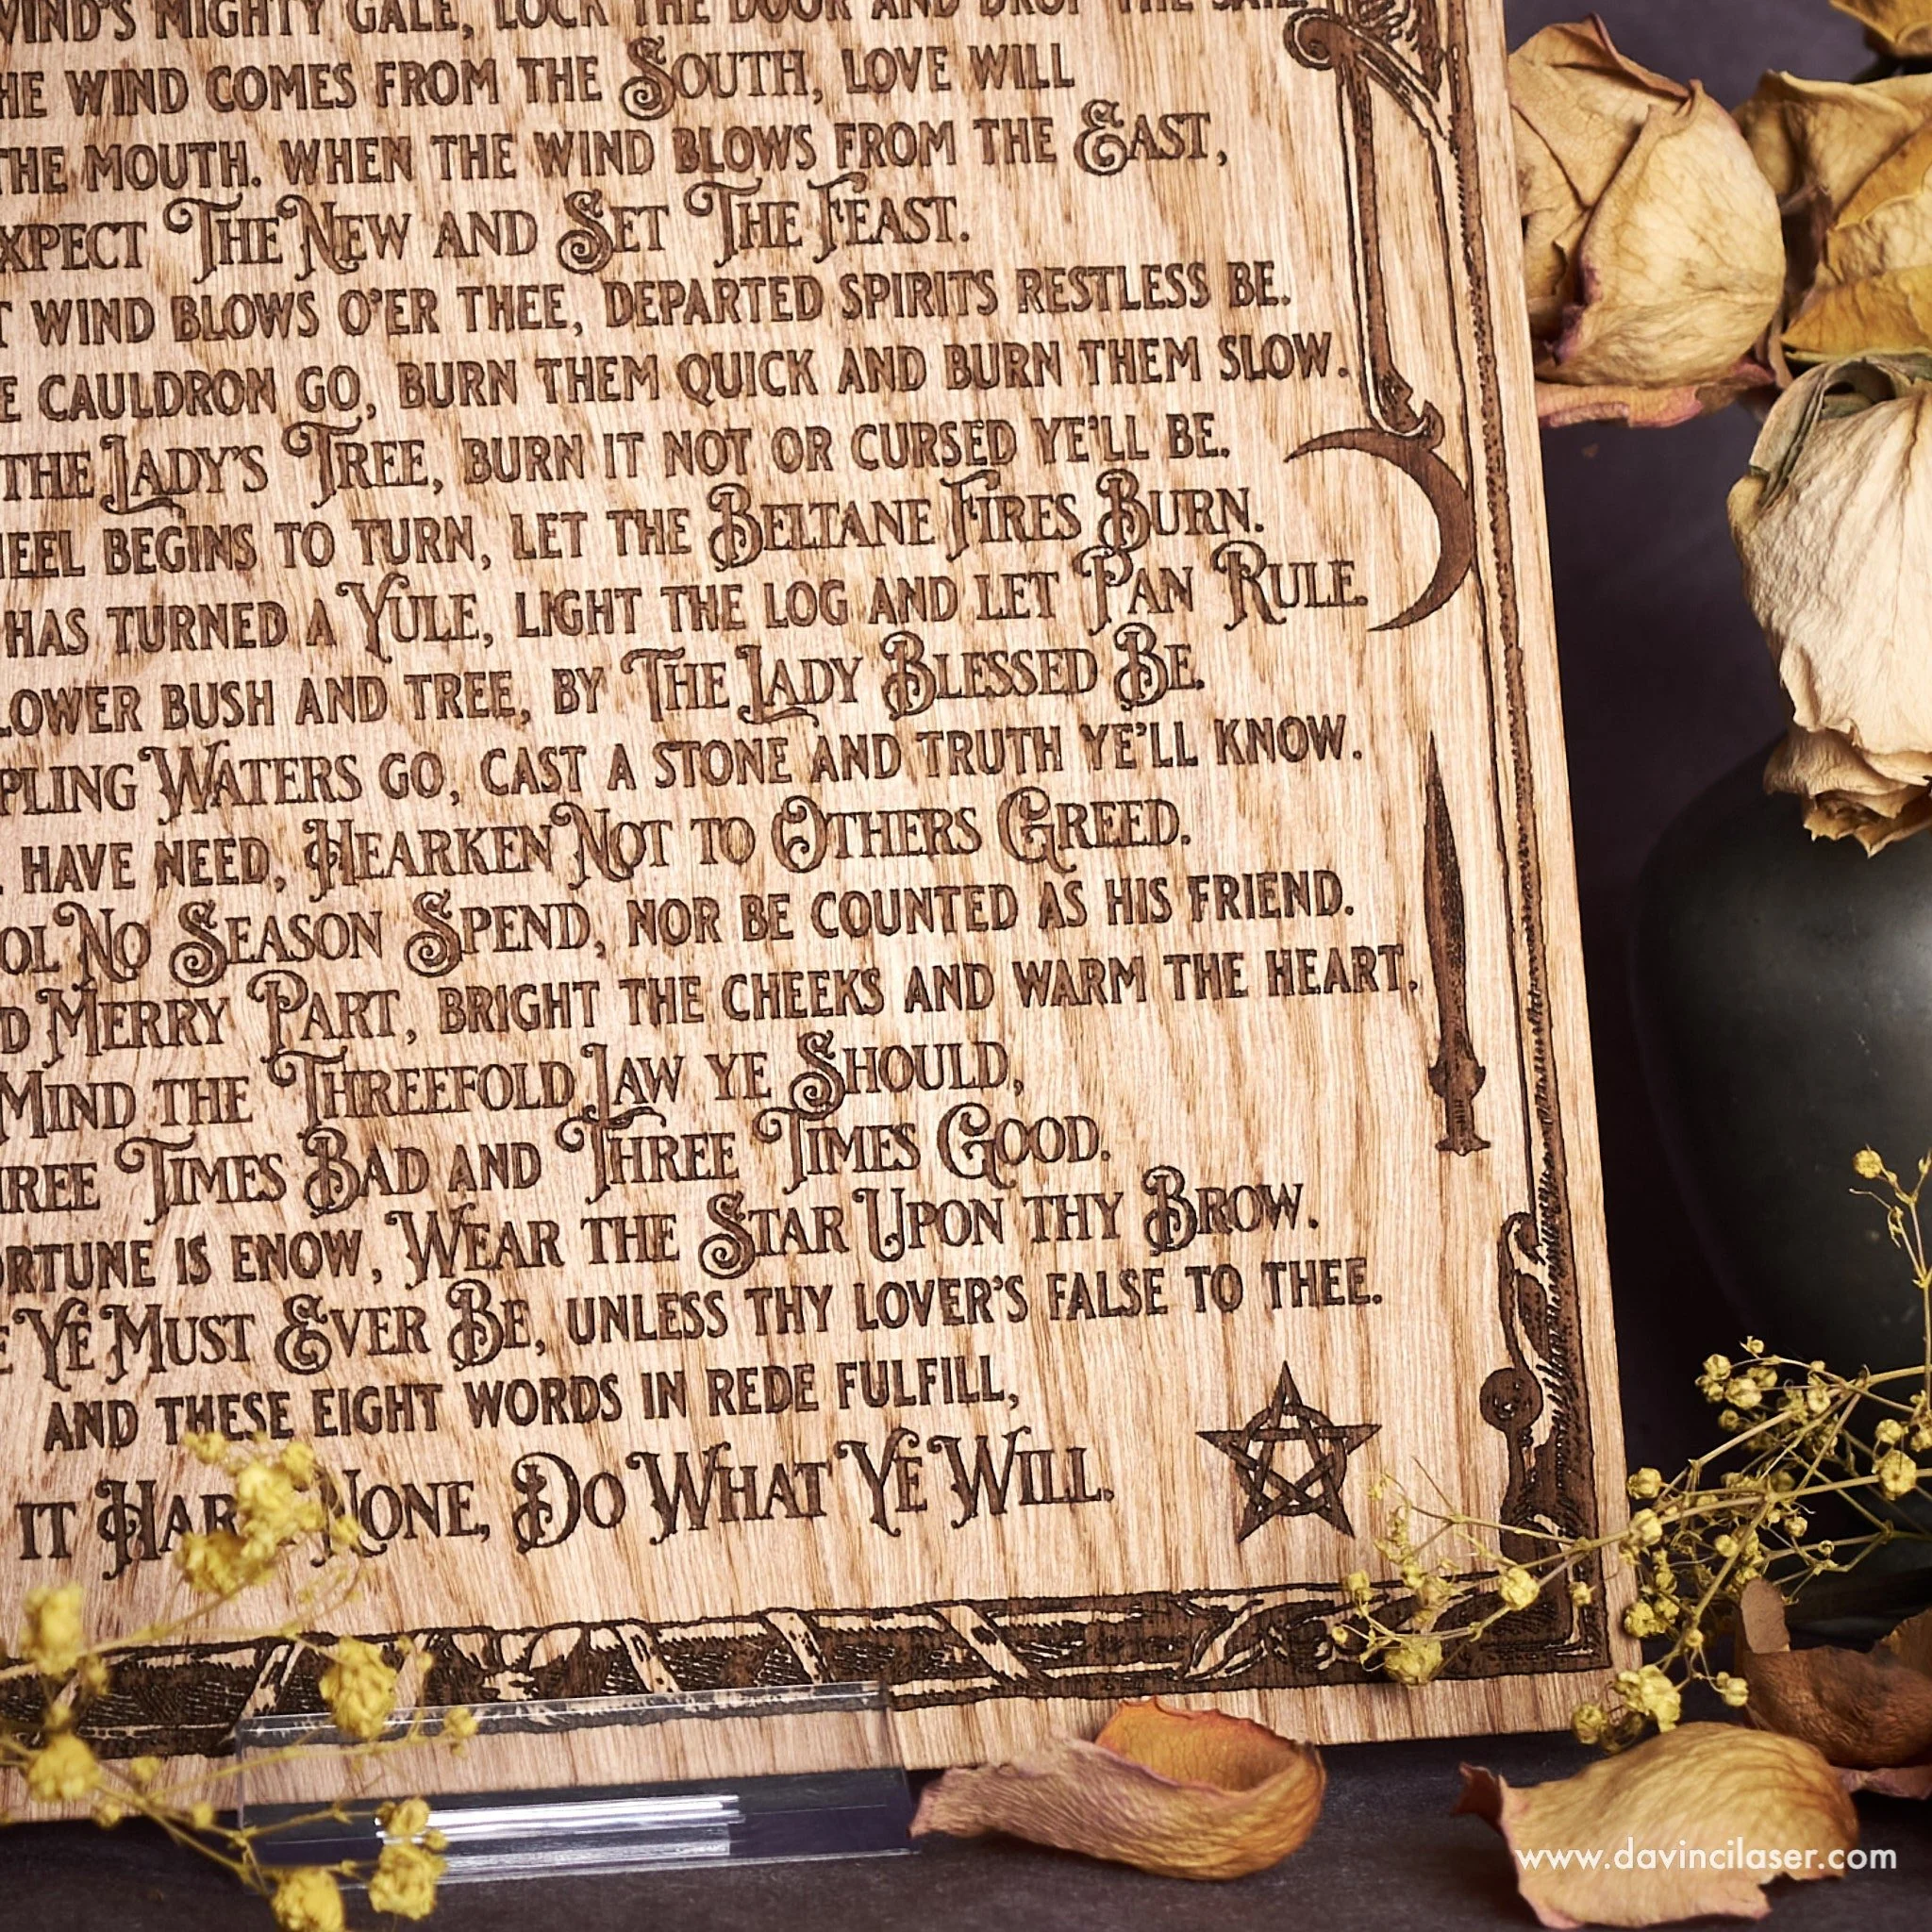 WIND'S MIGHTY GALE, LOCK THE DOOR AND DROP THE SAIL.
HE WIND COMES FROM THE SOUTH, LOVE WILL
THE MOUTH. WHEN THE WIND BLOWS FROM THE EAST,
XPECT THE NEW AND SET THE FEAST.
T WIND BLOWS O'ER THEE, DEPARTED SPIRITS RESTLESS BE.
E CAULDRON GO, BURN THEM QUICK AND BURN THEM SLOW.
THE LADY'S TREE, BURN IT NOT OR CURSED YE'LL BE.
HEEL BEGINS TO TURN, LET THE BELTANE FIRES BURN.
HAS TURNED A YULE, LIGHT THE LOG AND LET PAN RULE.
LOWER BUSH AND TREE, BY THE LADY BLESSED BE.
PLING WATERS GO, CAST A STONE AND TRUTH YE'LL KNOW.
HAVE NEED, HEARKEN NOT TO OTHERS GREED.
OL NO SEASON SPEND, NOR BE COUNTED AS HIS FRIEND.
D MERRY PART, BRIGHT THE CHEEKS AND WARM THE HEART.
MIND THE THREEFOLD LAW YE SHOULD,
HREE TIMES BAD AND THREE TIMES GOOD.
ORTUNE IS ENOW, WEAR THE STAR UPON THY BROW.
E YE MUST EVER BE, UNLESS THY LOVER'S FALSE TO THEE.
AND THESE EIGHT WORDS IN REDE FULFILL,
IT HARM NONE, DO WHAT YE WILL.
www.davincilaser.com